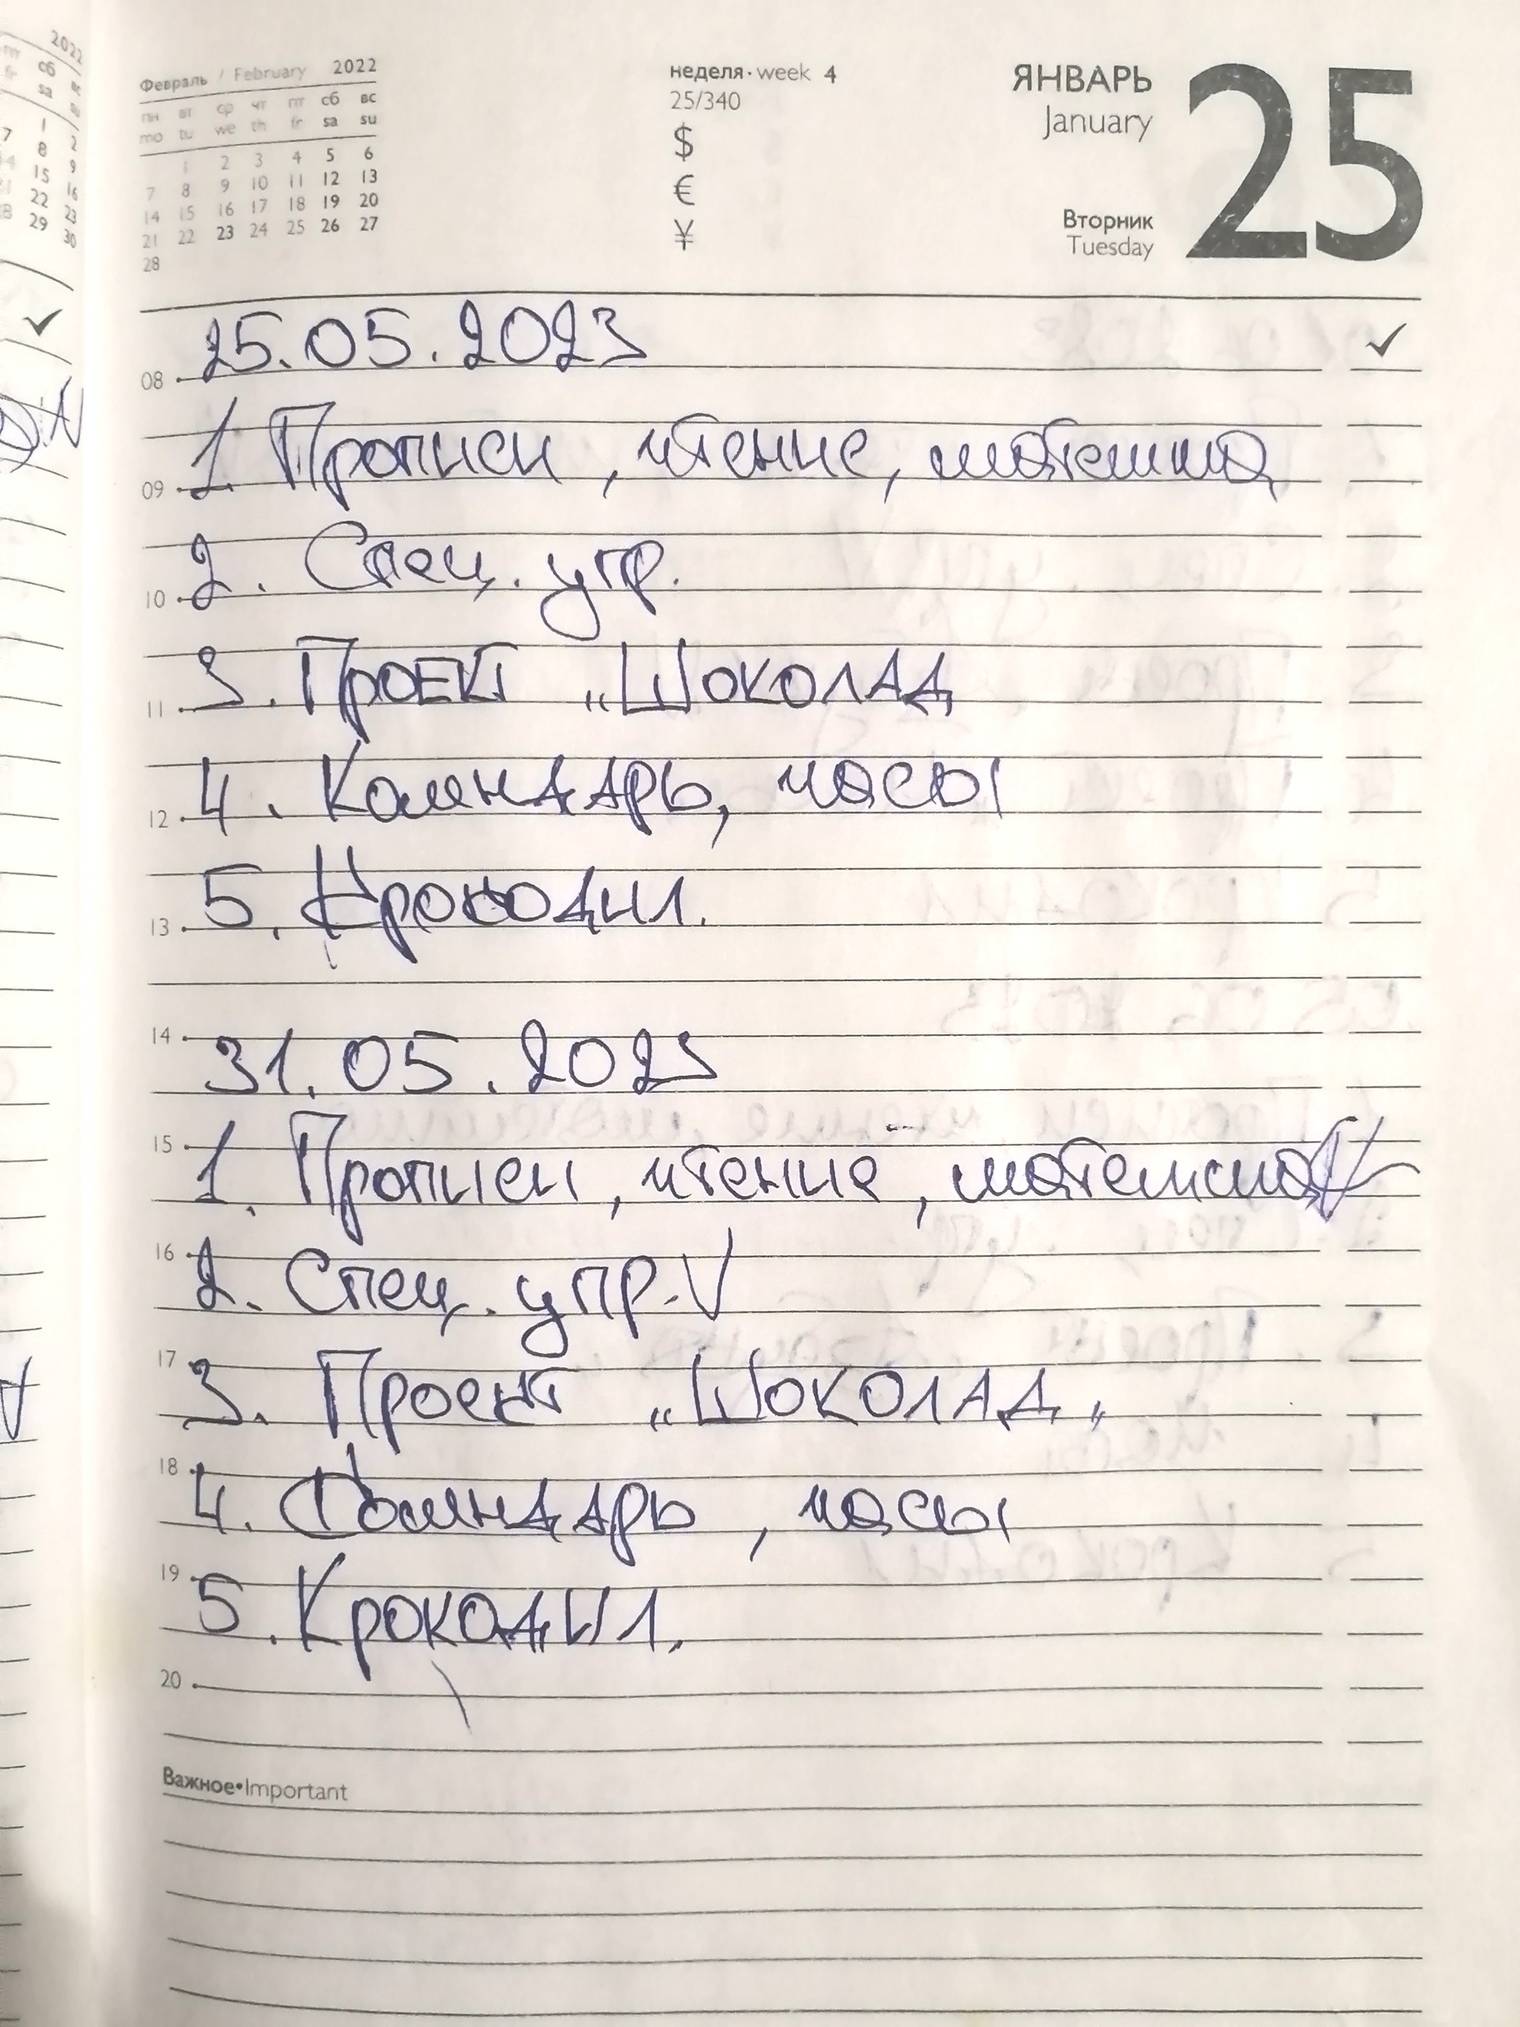 2022
пт сб вс
fr sa su
1 2
7 8 9
14 15 16
21 22 23
28 29 30
Февраль / February 2022
пн вт ср чт пт сб вс
mo tu we th fr sa su
1 2 3 4 5 6
7 8 9 10 11 12 13
14 15 16 17 18 19 20
21 22 23 24 25 26 27
28
неделя·week 4
25/340
$
€
¥
ЯНВАРЬ
January
Вторник
Tuesday
25
25.05.2023
08
1. Прописи, чтение, математика
09
2. Спец. упр.
10
3. ПРОЕКТ „ШОКОЛАД
11
4. Календарь, часы
12
5. Крокодил.
13
14
31.05.2023
15
1. Прописи, чтение, математика V
16
2. Спец. упр. V
17
3. Проект „ШОКОЛАД„
18
4. Календарь, часы
19
5. Крокодил.
20
Важное•Important